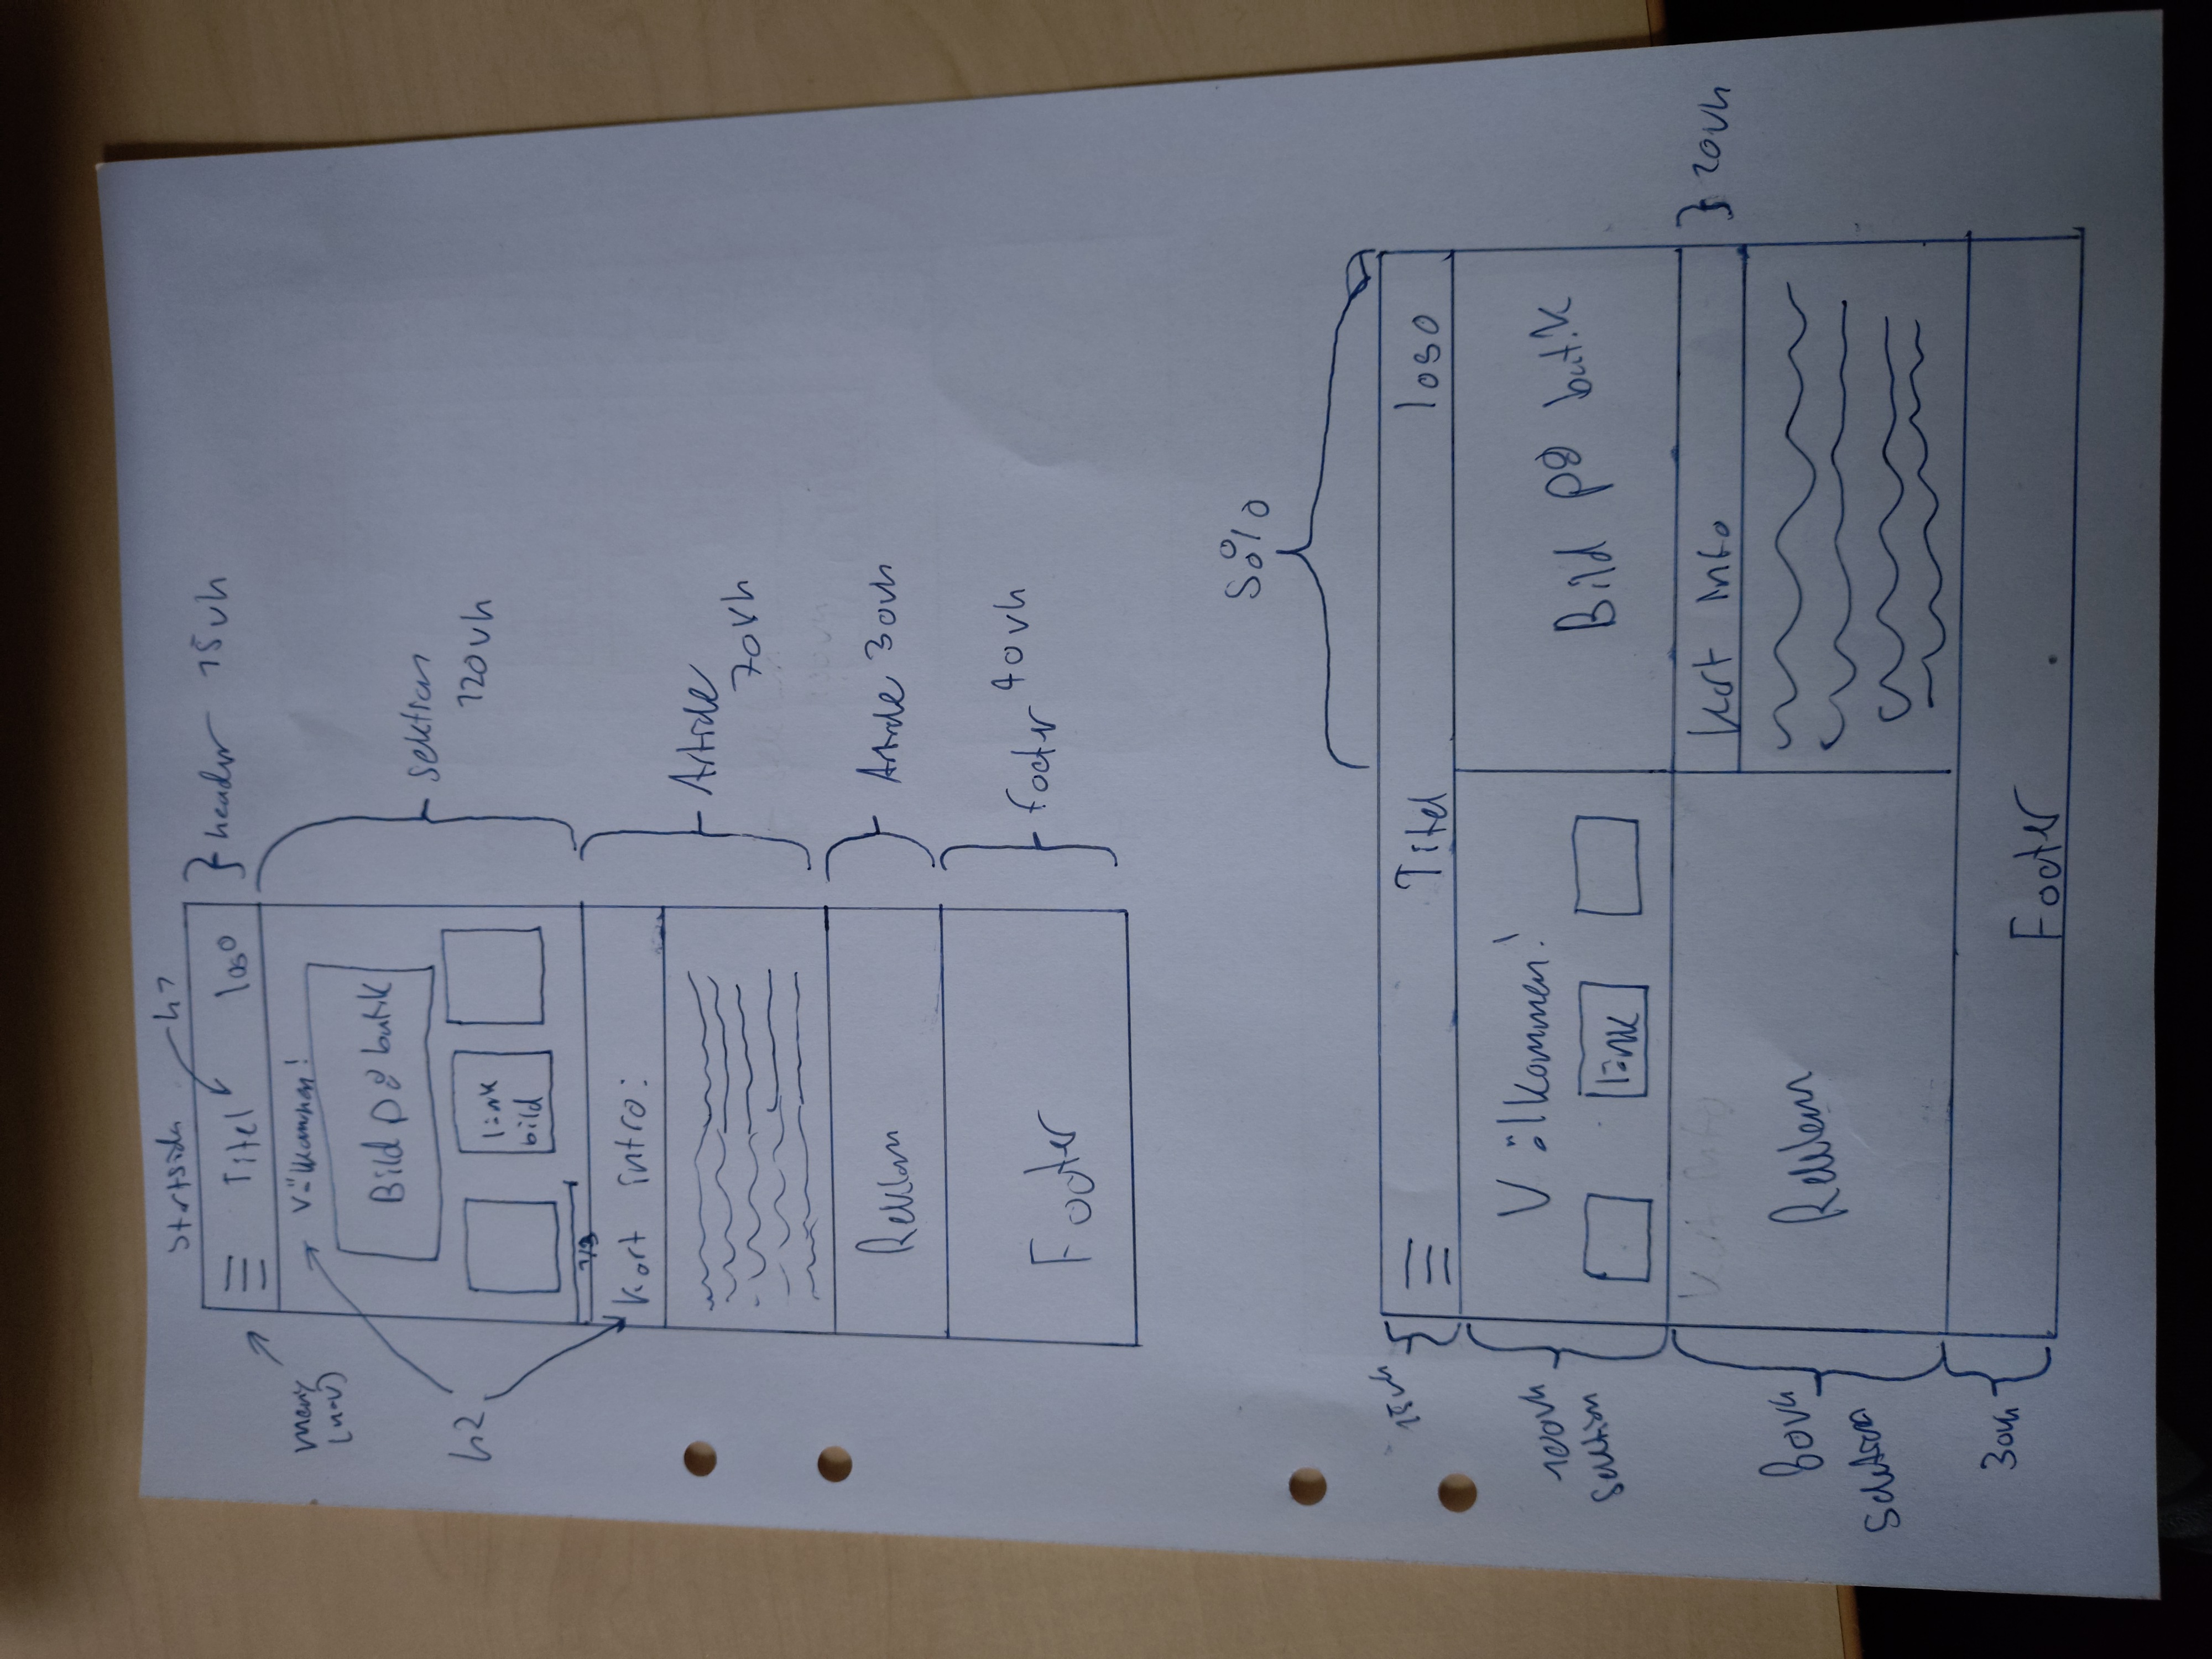 Startsida
h1
Titel
logo
header 15vh
meny
(nav)
Välkommen!
Bild på butik
h2
länk
bild
sektion
120vh
1/3
Kort intro:
Article
70vh
Reklam
Article 30vh
Footer
footer 40vh
50%
15vh
Titel
logo
100vh
sektion
Välkommen!
länk
Bild på butik
Kort info
20vh
Kort info
80vh
sektion
Reklam
30vh
Footer